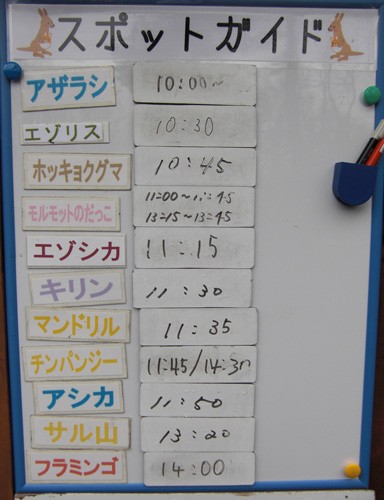 スポットガイド
アザラシ 10:00~
エゾリス 10:30
ホッキョクグマ 10:45
モルモットのだっこ 11:00~11:45
13:15~13:45
エゾシカ 11:15
キリン 11:30
マンドリル 11:35
チンパンジー 11:45/14:30
アシカ 11:50
サル山 13:20
フラミンゴ 14:00